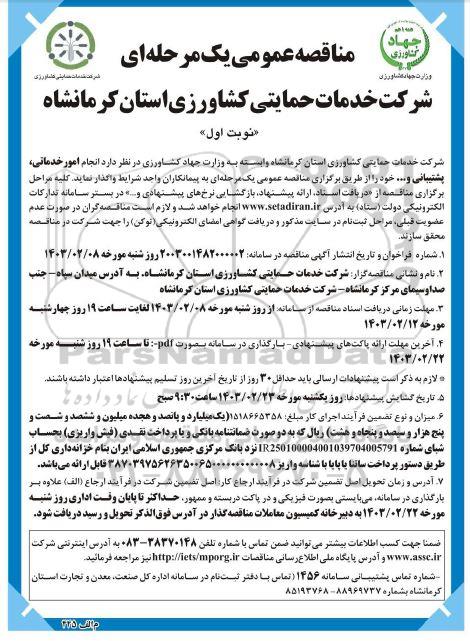 همه با هم
جهاد
کشاورزی
وزارت جهاد کشاورزی
شرکت خدمات حمایتی کشاورزی
مناقصه عمومی یک مرحله‌ای
شرکت خدمات حمایتی کشاورزی استان کرمانشاه
«نوبت اول»
شرکت خدمات حمایتی کشاورزی استان کرمانشاه وابسته به وزارت جهاد کشاورزی در نظر دارد انجام امور خدماتی،
پشتیبانی و... خود را از طریق برگزاری مناقصه عمومی یک‌مرحله‌ای به پیمانکاران واجد شرایط واگذار نماید. کلیه مراحل
برگزاری مناقصه از «دریافت اسناد، ارائه پیشنهاد، بازگشایی نرخ‌های پیشنهادی و...» در بستر سامانه تدارکات
الکترونیکی دولت (ستاد) به آدرس www.setadiran.ir انجام خواهد شد و لازم است مناقصه‌گران در صورت عدم
عضویت قبلی، مراحل ثبت‌نام در سایت مذکور و دریافت گواهی امضای الکترونیکی (توکن) را جهت شرکت در مناقصه
محقق سازند.
۱. شماره فراخوان و تاریخ انتشار آگهی مناقصه در سامانه: ۲۰۰۳۰۰۱۴۸۲۰۰۰۰۰۲ روز شنبه مورخه ۱۴۰۳/۰۲/۰۸
۲. نام و نشانی مناقصه‌گزار: شرکت خدمات حمایتی کشاورزی استان کرمانشاه، به آدرس میدان سپاه – جنب
صداوسیمای مرکز کرمانشاه – شرکت خدمات حمایتی کشاورزی استان کرمانشاه
۳. مهلت زمانی دریافت اسناد مناقصه از سامانه: از روز شنبه مورخه ۱۴۰۳/۰۲/۰۸ لغایت ساعت ۱۹ روز چهارشنبه
مورخه ۱۴۰۳/۰۲/۱۲
۴. آخرین مهلت ارائه پاکت‌های پیشنهادی – بارگذاری در سامانه بصورت pdf: تا ساعت ۱۹ روز شنبه مورخه
۱۴۰۳/۰۲/۲۲
* لازم به ذکر است پیشنهادات ارسالی باید حداقل ۳۰ روز از تاریخ آخرین روز تسلیم پیشنهادها اعتبار داشته باشند.
۵. تاریخ گشایش پیشنهادها: روز یکشنبه مورخه ۱۴۰۳/۰۲/۲۳ ساعت ۹:۳۰ صبح
۶. میزان و نوع تضمین فرآیند اجرای کار مبلغ: ۱۵۱۸۶۶۵۳۵۸ (یک میلیارد و پانصد و هجده میلیون و ششصد و شصت و
پنج هزار و سیصد و پنجاه و هشت) ریال که به دو صورت ضمانتنامه بانکی و یا پرداخت نقدی (فیش واریزی) بحساب
شبای شماره IR250100004001039704005791 نزد بانک مرکزی جمهوری اسلامی ایران بنام خزانه‌داری کل از
طریق دستور پرداخت ساتنا یا پایا با شناسه واریز قابل ارائه می‌باشد.
۷. آدرس و زمان تحویل اصل تضمین شرکت در فرآیند ارجاع کار: اصل تضمین شرکت در فرآیند ارجاع (الف) علاوه بر
بارگذاری در سامانه، می‌بایستی بصورت فیزیکی و در پاکت دربسته و ممهور، حداکثر تا پایان وقت اداری روز شنبه
مورخه ۱۴۰۳/۰۲/۲۲ به دبیرخانه کمیسیون معاملات مناقصه‌گذار در آدرس فوق‌الذکر تحویل و رسید دریافت شود.
ضمنا جهت کسب اطلاعات بیشتر می‌توانید ضمن تماس با شماره تلفن ۳۸۳۷۰۱۴۸-۰۸۳ به آدرس اینترنتی شرکت
www.assc.ir و آدرس پایگاه ملی اطلاع‌رسانی مناقصات http://iets/mporg.ir نیز مراجعه فرمائید.
-شماره تماس پشتیبانی سامانه ۱۴۵۶ (تماس با دفتر ثبت‌نام در سامانه اداره کل صنعت، معدن و تجارت استان
کرمانشاه بشماره ۸۸۹۶۹۷۳۷ - ۸۵۱۹۳۷۶۸
م الف ۴۲۵
ParsNamadData